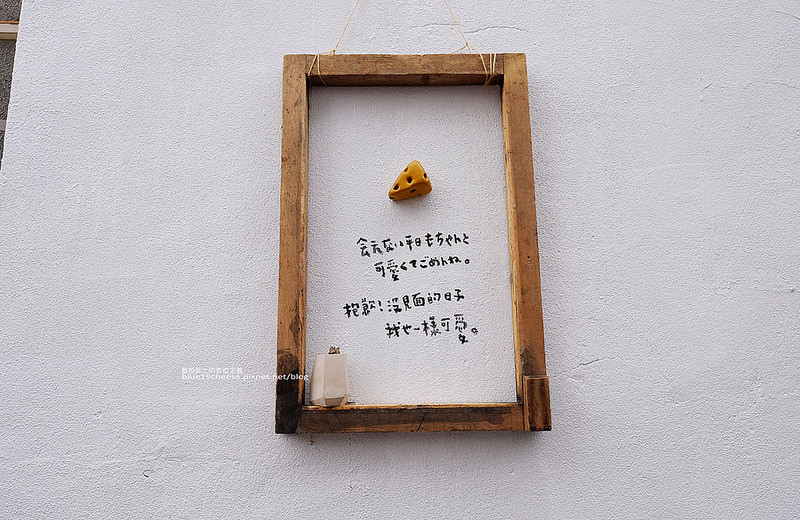 会えない平日もちゃんと
可愛くてごめんね。
抱歉!沒見面的日子
我也一樣可愛。
藍色起士的美食主義
blue79cheese.pixnet.net/blog